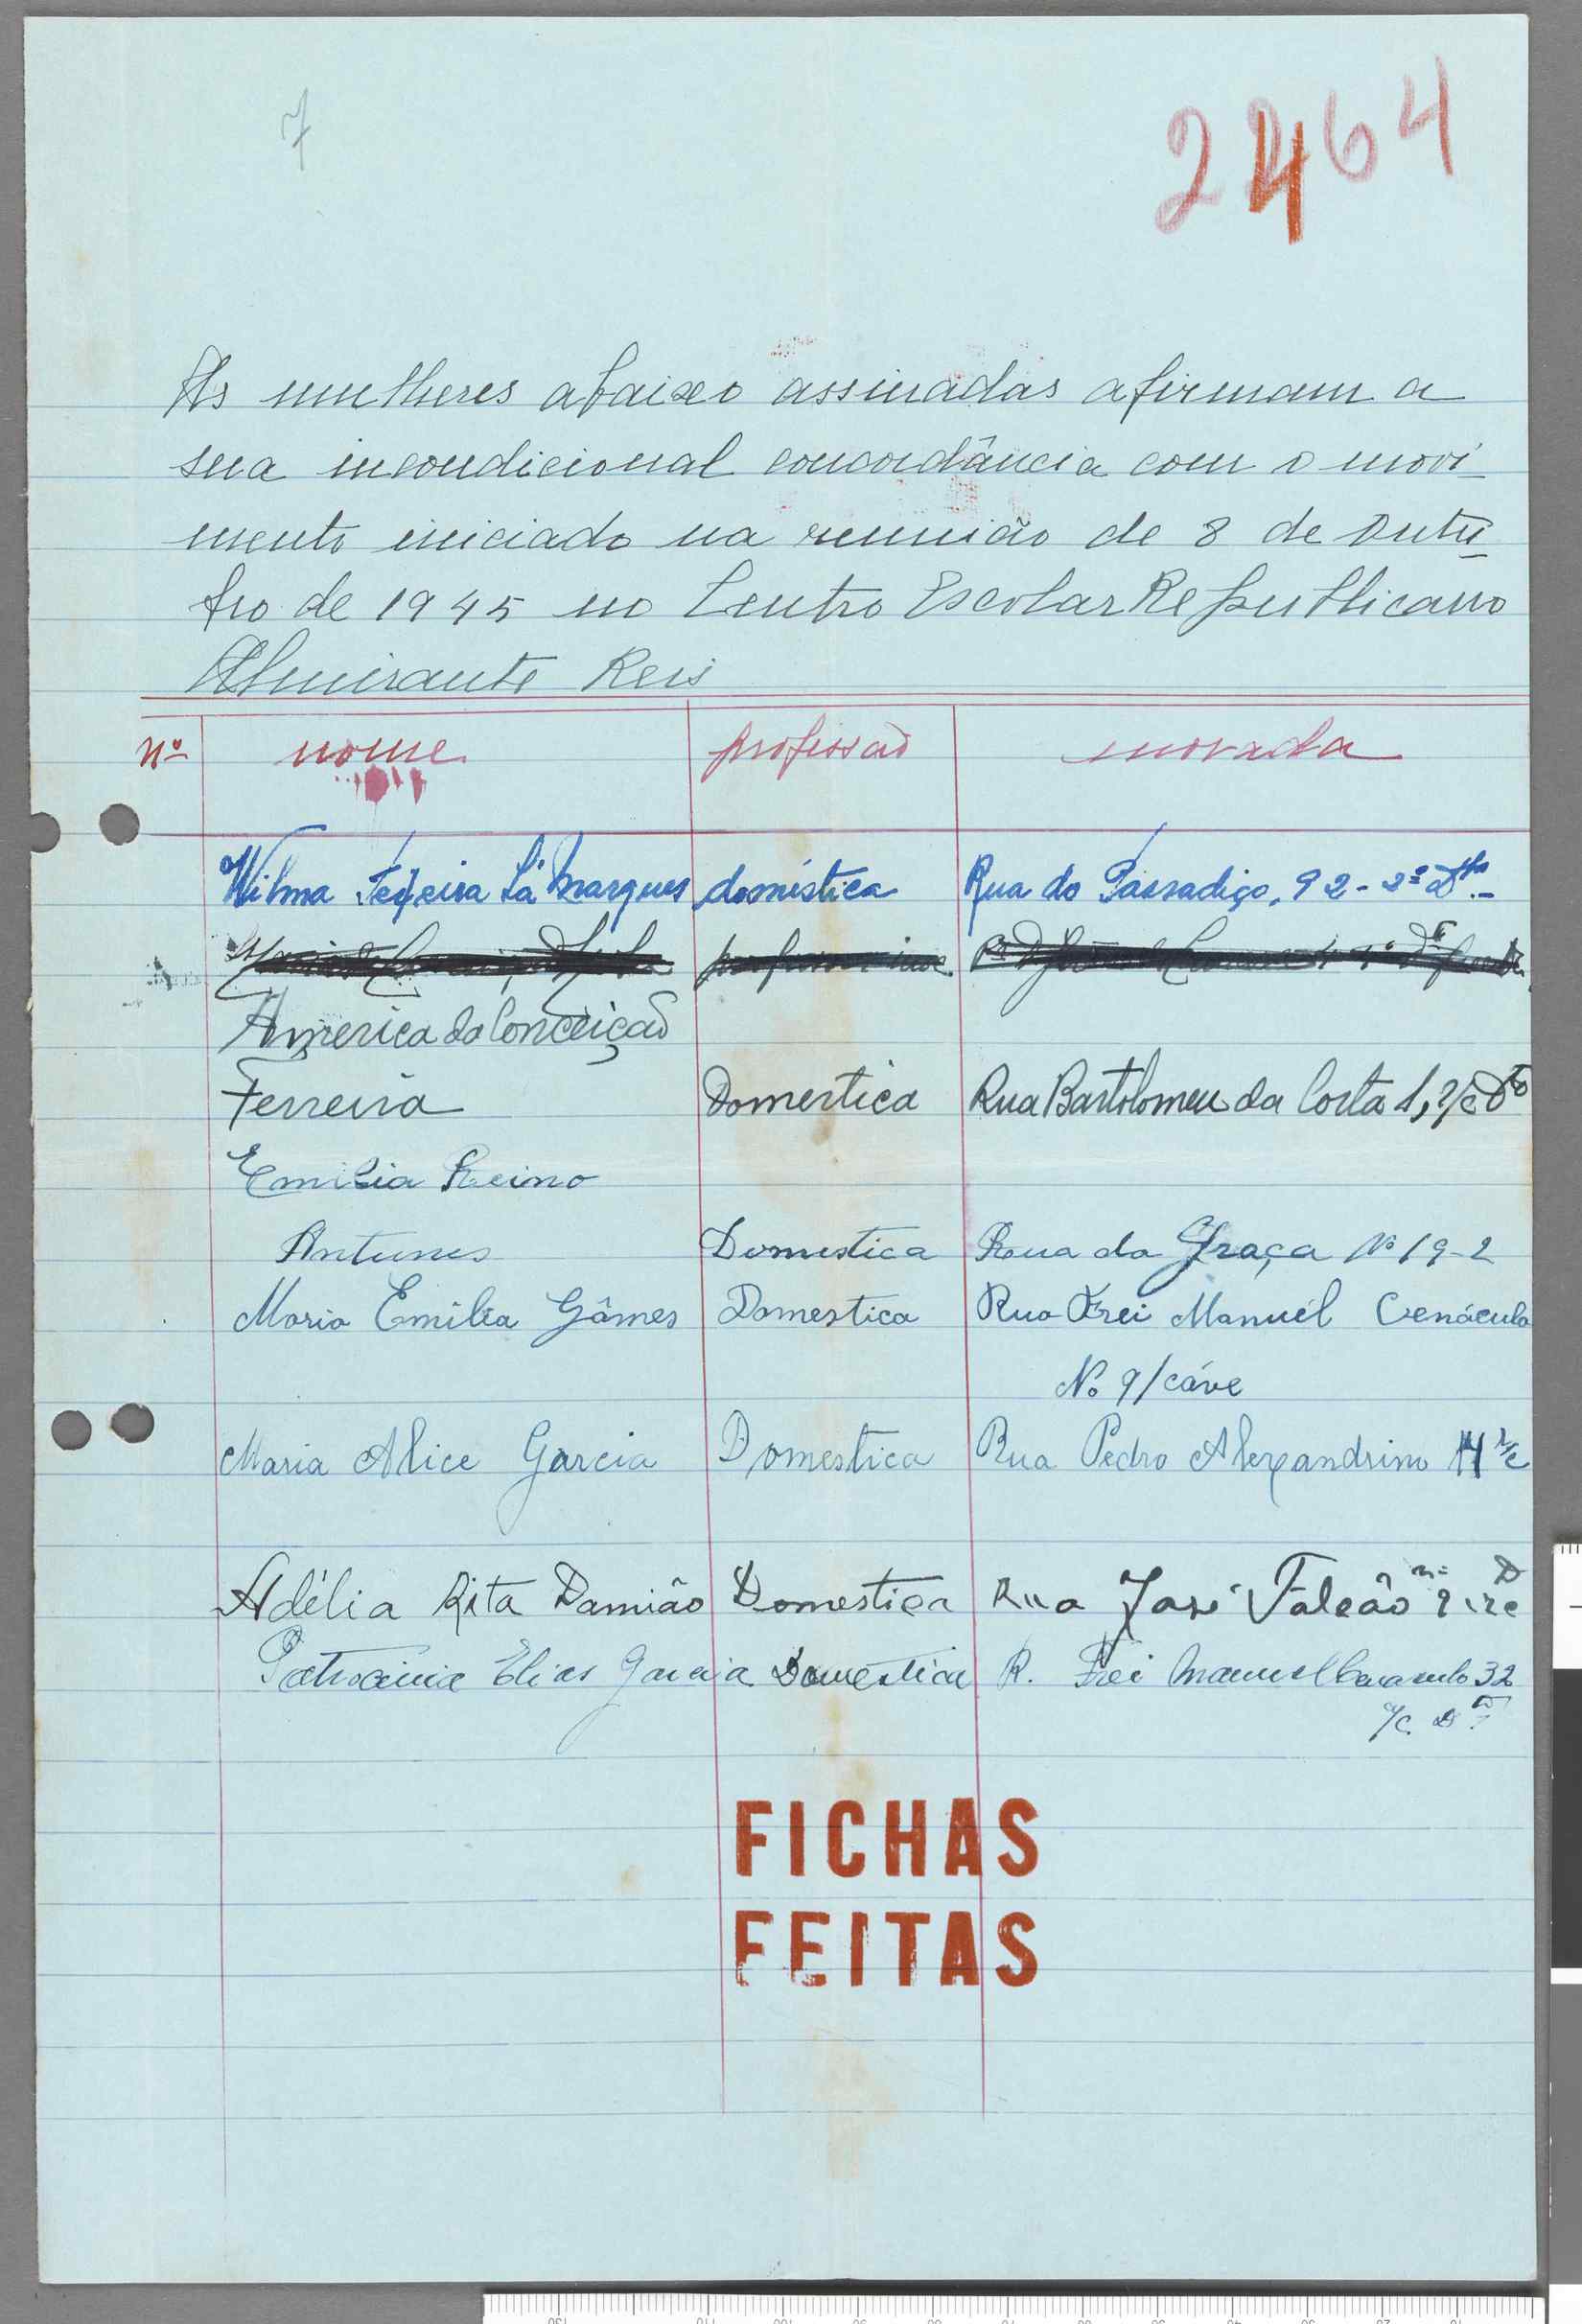 7
2464
As mulheres abaixo assinadas afirmam a
sua incondicional concordância com o movi-
mento iniciado na reunião de 8 de Outu-
bro de 1945 no Centro Escolar Republicano
Almirante Reis
nº nome profissão morada
Wilma Teixeira Sá Marques doméstica Rua do Passadiço, 92-2º Dto.
America da Conceição
Ferreira Domestica Rua Bartolomeu da Costa 1, r/c Dto
Emilia Reino
Antunes Domestica Rua da Graça Nº 19-2
Maria Emilia Gômes Domestica Rua Frei Manuél Cenáculo
No 9/cáve
Maria Alice Garcia Domestica Rua Pedro Alexandrino r/c
Adélia Rita Damião Domestica Rua José Falcão nº
Patrocinia Elias Garcia Domestica R. Frei Manuel Cenaculo 32
r/c. Dto
FICHAS
FEITAS